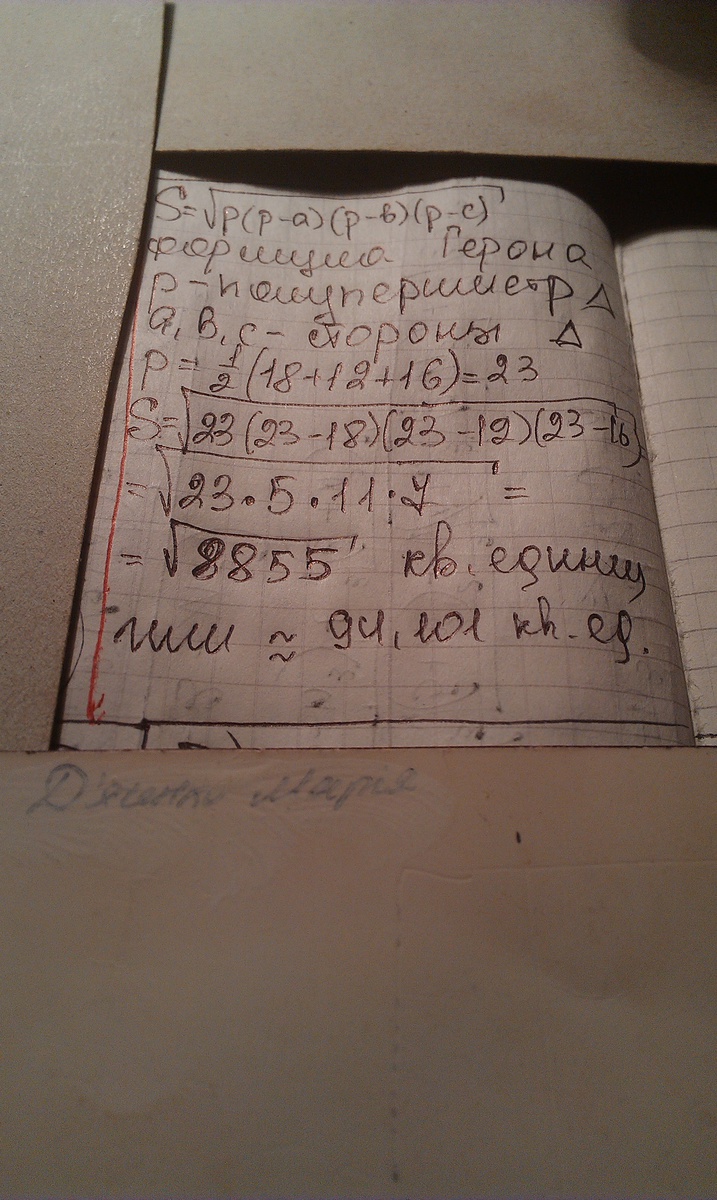 S=√p(p-a)(p-в)(p-c)
формула Герона
p-полупериметр Δ
a, в, c- стороны Δ
p = 1/2 (18+12+16)=23
S=√23(23-18)(23-12)(23-16)
=√23·5·11·7 =
=√8855 кв. единиц
или ≈ 94,101 кв. ед.
Марія